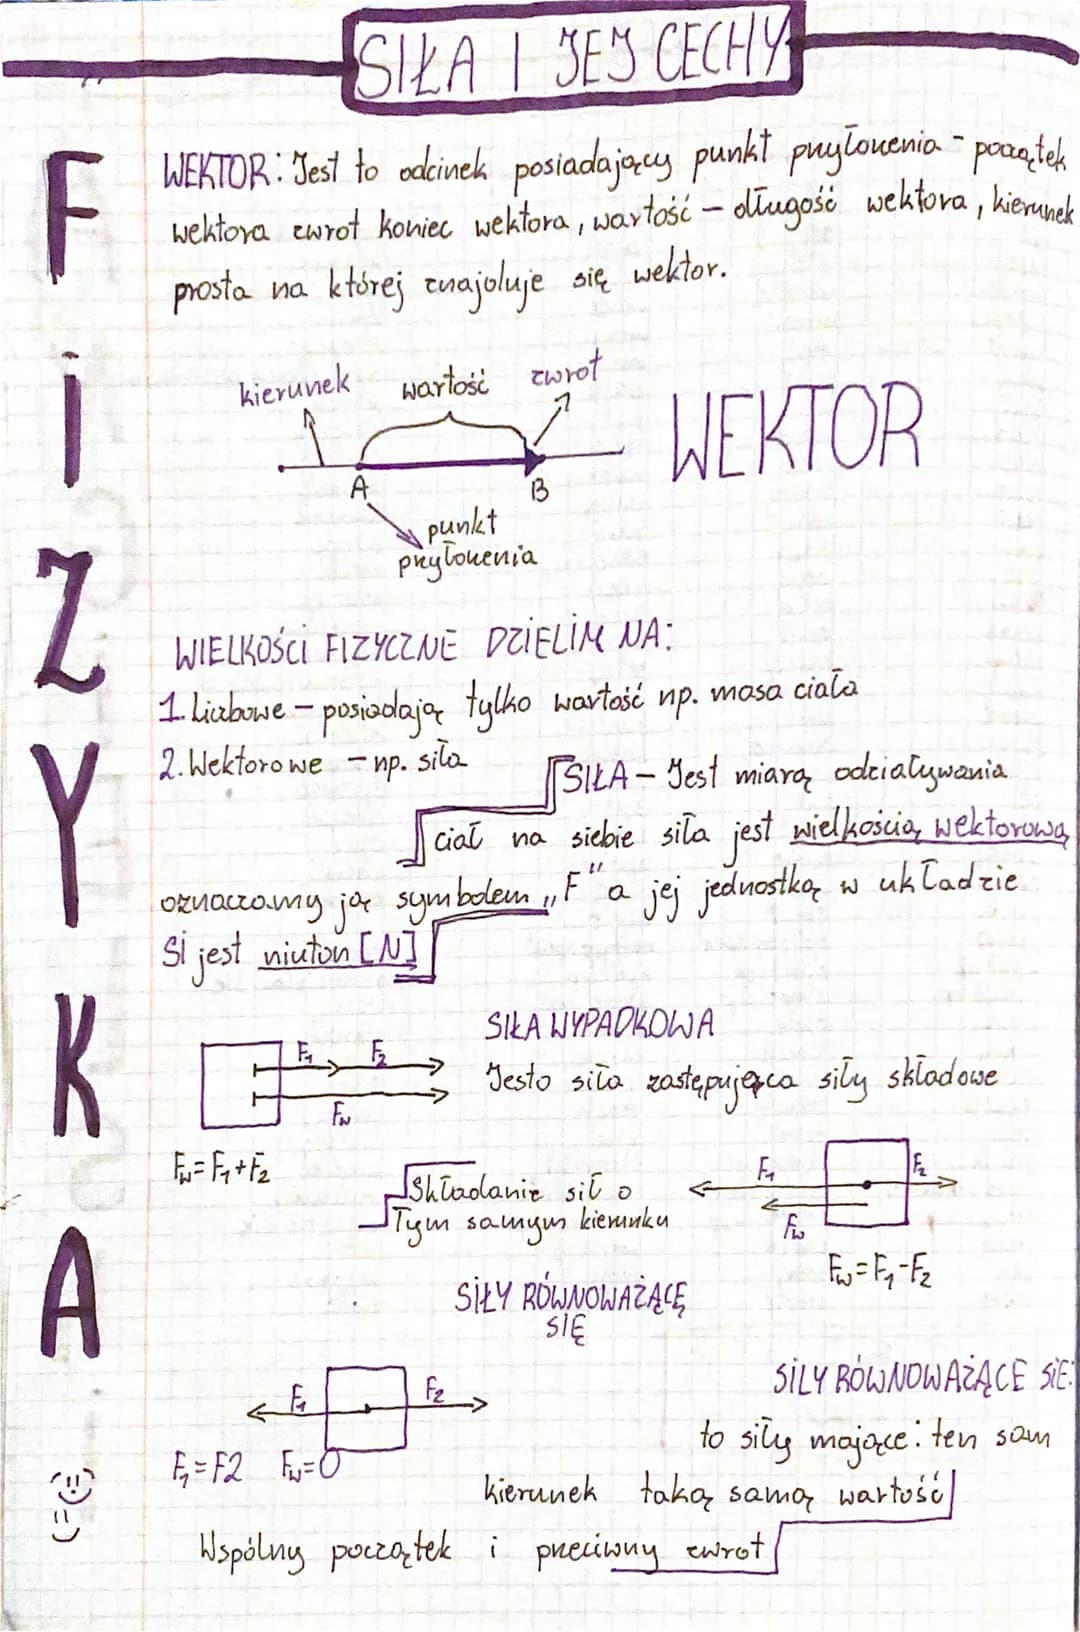 SIŁA I JEJ CECHY
FiZYKA
WEKTOR: Jest to odcinek posiadający punkt przyłożenia - początek
wektora zwrot koniec wektora, wartość - długość wektora, kierunek
prosta na której znajduje się wektor.
kierunek wartość zwrot
WEKTOR
A B
punkt
przyłożenia
WIELKOŚCi FIZYCZNE DZiELIM NA:
1. Liczbowe - posiadają tylko wartość np. masa ciała
2. Wektorowe - np. siła
SIŁA - Jest miarą odziaływania
ciał na siebie siła jest wielkością wektorową
oznaczamy ją symbolem „F" a jej jednostką w układzie
Si jest niuton [N]
SIŁA WYPADKOWA
F1 F2
Jesto siła zastępująca siły składowe
Fw
Fw=F1+F2
Składanie sił o
Tym samym kierunku
F1 F2
Fw
Fw=F1-F2
SIŁY RÓWNOWAŻĄCĘ
SIĘ
F1 F2
F1=F2 Fw=0
SiŁY RÓWNOWAŻĄCE SIE:
to siły mające: ten sam
kierunek taką samą wartość
Wspólny początek i przeciwny zwrot